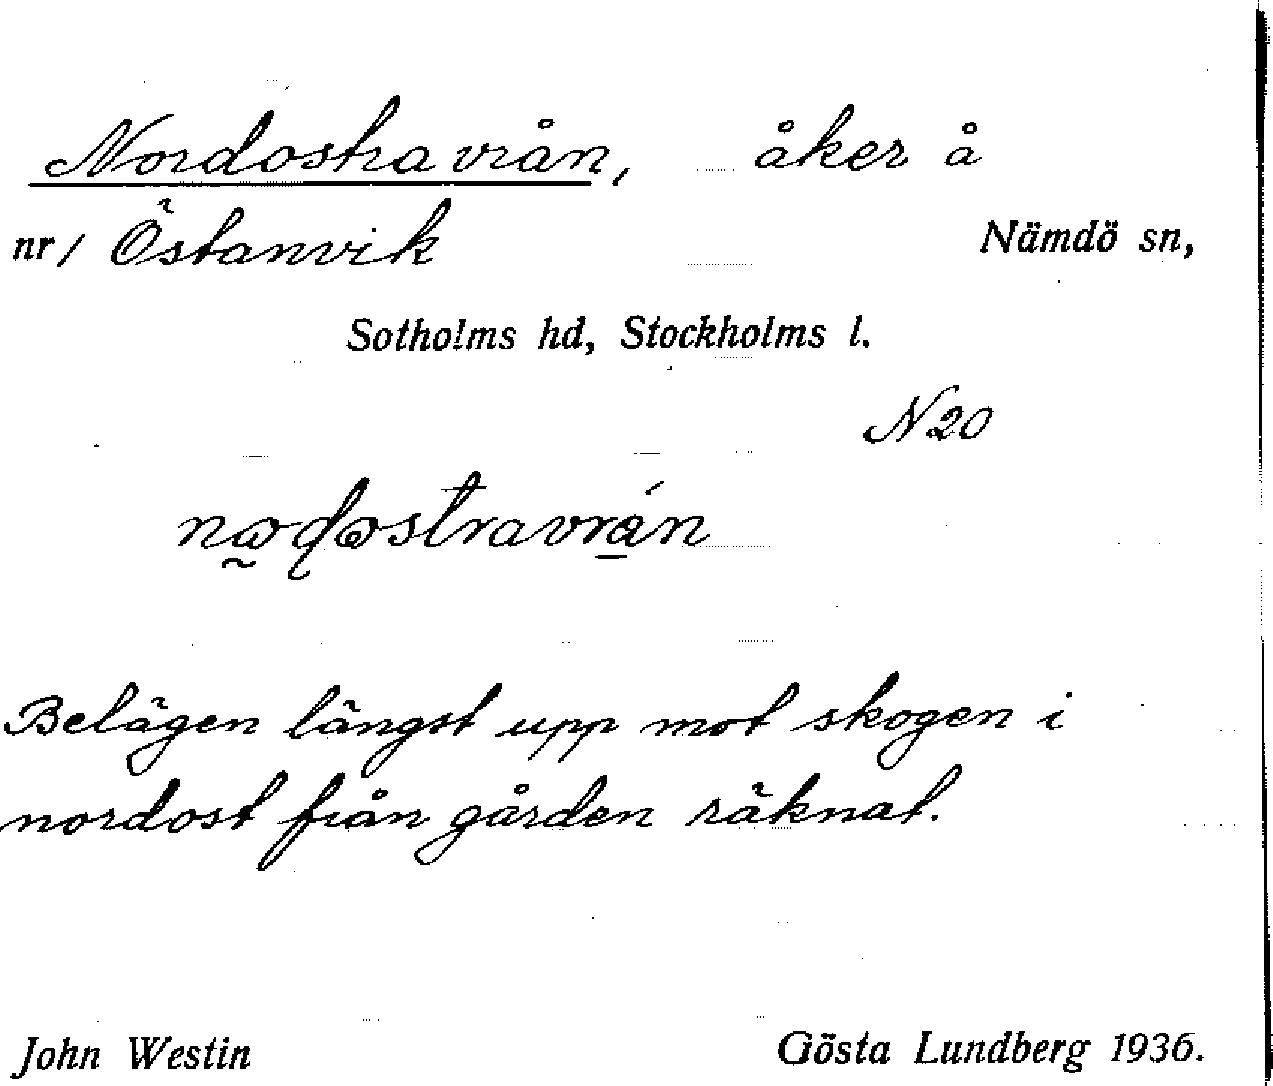 Nordostra vrån, åker å
nr/ Östanvik Nämdö sn,
Sotholms hd, Stockholms l.
N 20
Belägen längst upp mot skogen i
nordost från gården räknat.
John Westin Gösta Lundberg 1936.